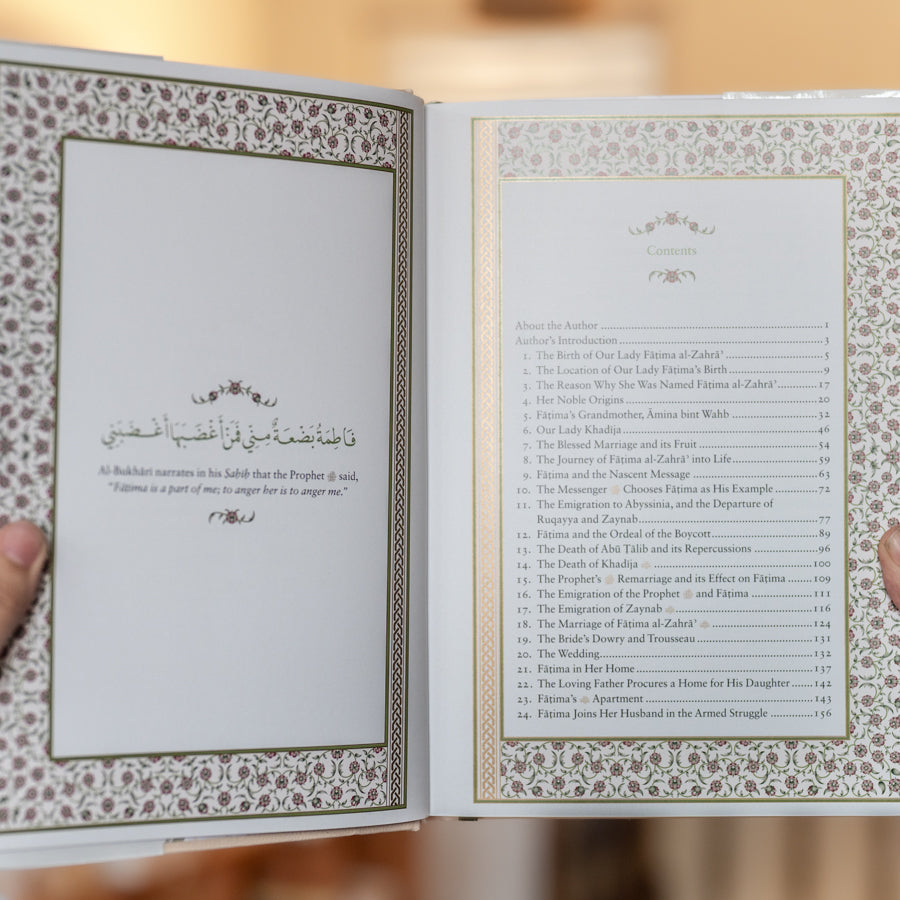 فَاطِمَةُ بَضْعَةٌ مِنِّي فَمَنْ أَغْضَبَهَا أَغْضَبَنِي
Al-Bukhārī narrates in his Ṣaḥīḥ that the Prophet ﷺ said,
“Fāṭima is a part of me; to anger her is to anger me.”
Contents
About the Author ........ 1
Author’s Introduction ........ 3
1. The Birth of Our Lady Fāṭima al-Zahrāʾ ........ 5
2. The Location of Our Lady Fāṭima’s Birth ........ 9
3. The Reason Why She Was Named Fāṭima al-Zahrāʾ ........ 17
4. Her Noble Origins ........ 20
5. Fāṭima’s Grandmother, Āmina bint Wahb ........ 32
6. Our Lady Khadīja ........ 46
7. The Blessed Marriage and its Fruit ........ 54
8. The Journey of Fāṭima al-Zahrāʾ into Life ........ 59
9. Fāṭima and the Nascent Message ........ 63
10. The Messenger ﷺ Chooses Fāṭima as His Example ........ 72
11. The Emigration to Abyssinia, and the Departure of
Ruqayya and Zaynab ........ 77
12. Fāṭima and the Ordeal of the Boycott ........ 89
13. The Death of Abū Ṭālib and its Repercussions ........ 96
14. The Death of Khadīja ........ 100
15. The Prophet’s ﷺ Remarriage and its Effect on Fāṭima ........ 109
16. The Emigration of the Prophet ﷺ and Fāṭima ........ 111
17. The Emigration of Zaynab ........ 116
18. The Marriage of Fāṭima al-Zahrāʾ ........ 124
19. The Bride’s Dowry and Trousseau ........ 131
20. The Wedding ........ 132
21. Fāṭima in Her Home ........ 137
22. The Loving Father Procures a Home for His Daughter ........ 142
23. Fāṭima’s Apartment ........ 143
24. Fāṭima Joins Her Husband in the Armed Struggle ........ 156